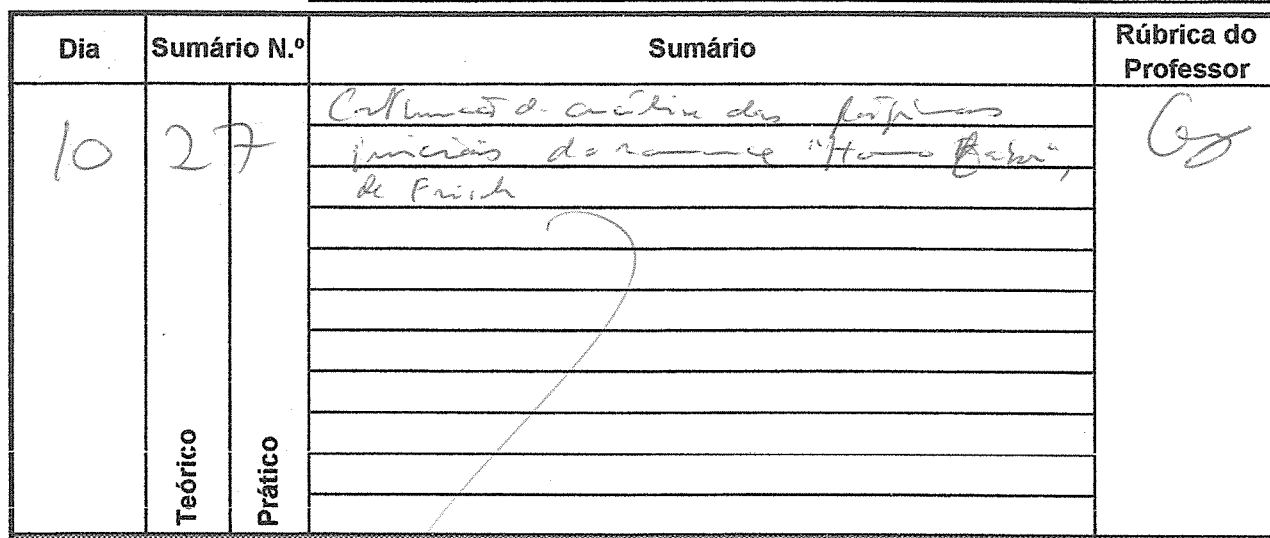 Dia Sumário N.º Sumário Rúbrica do Professor
10 27 Continuação da análise das páginas
iniciais do romance "Homo Faber",
de Frisch
Teórico Prático